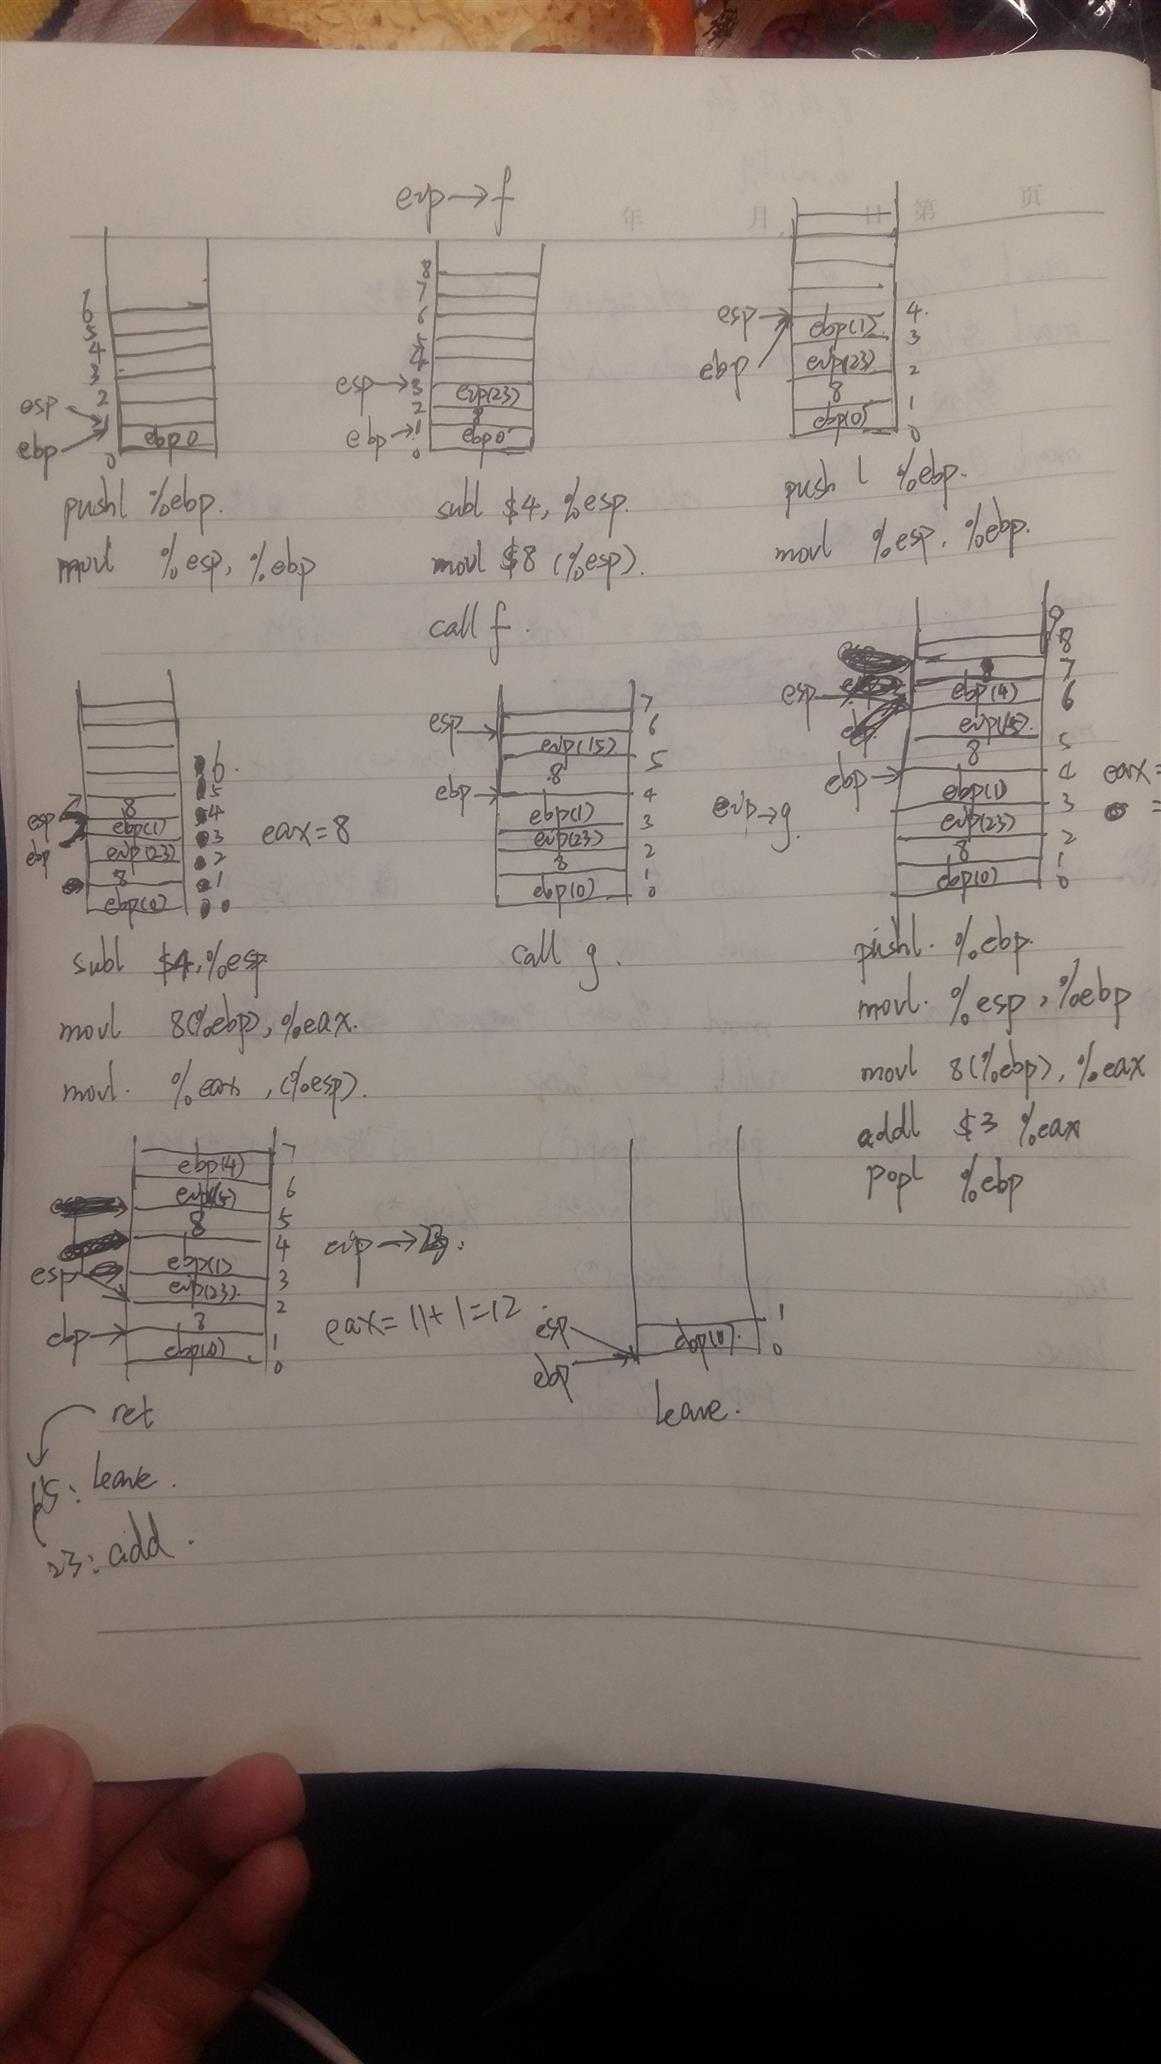 年 月 日 第 页
eip→f
6
5
4
3
2
1
0
esp
ebp
ebp 0
pushl %ebp.
movl %esp, %ebp
8
7
6
5
4
3
2
1
0
esp→
ebp→
eip(23)
8
ebp 0
subl $4, %esp.
movl $8 (%esp).
call f.
esp
ebp
ebp(1)
eip(23)
8
ebp(0)
4
3
2
1
0
pushl %ebp.
movl %esp, %ebp.
esp
ebp
8
ebp(1)
eip(23)
8
ebp(0)
6
5
4
3
2
1
0
eax=8
subl $4,%esp
movl 8(%ebp), %eax.
movl. %eax, (%esp).
esp
ebp
eip(15)
8
ebp(1)
eip(23)
8
ebp(0)
7
6
5
4
3
2
1
0
call g.
eip→g.
esp
ebp
ebp(4)
eip(15)
8
ebp(1)
eip(23)
8
ebp(0)
9
8
7
6
5
4
3
2
1
0
eax=
=
pushl. %ebp.
movl. %esp, %ebp
movl 8(%ebp), %eax
addl $3 %eax
popl %ebp
esp
ebp
ebp(4)
eip(15)
8
ebp(1)
eip(23)
8
ebp(0)
7
6
5
4
3
2
1
0
eip→
eax=11+1=12
ret
15: leave.
23: add.
esp
ebp
ebp(0)
1
0
leave.